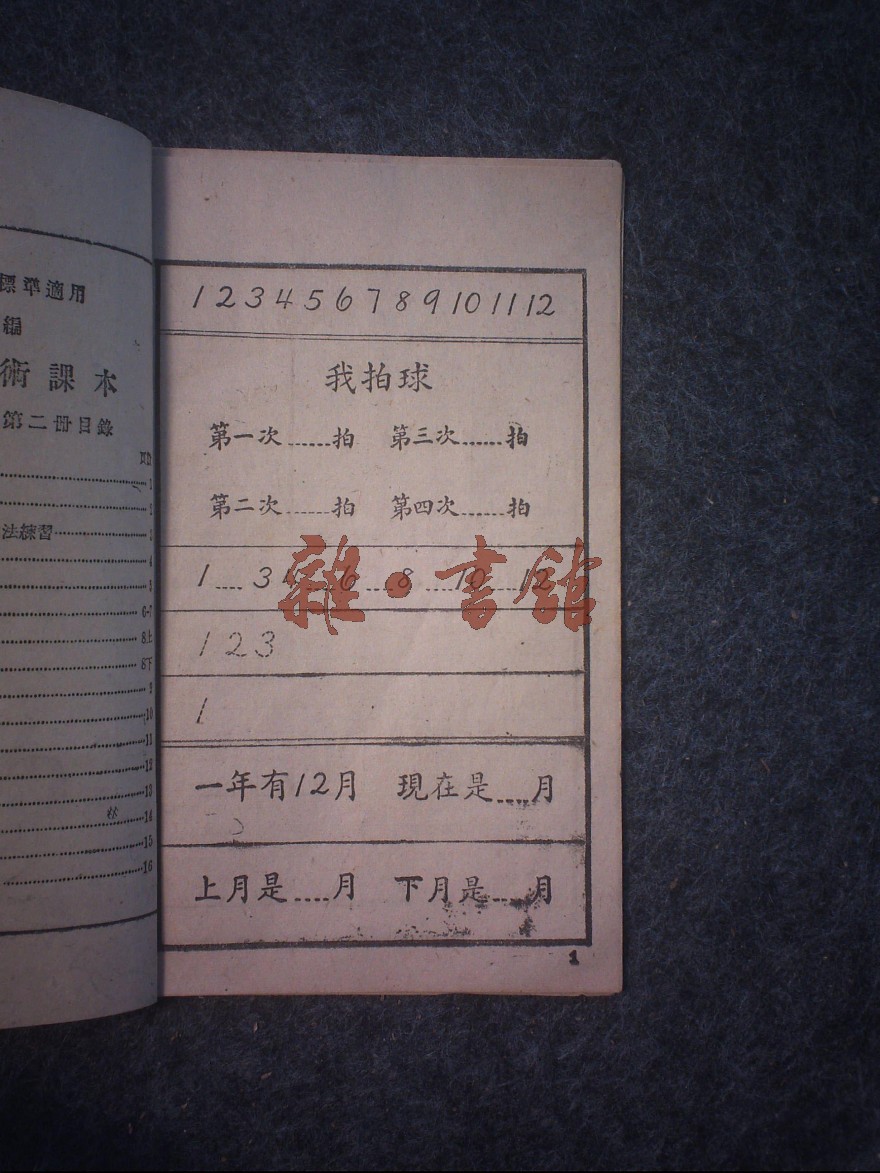 標準適用
編
術課本
第二冊目錄
頁數
1
2
法練習 3
4
5
6-7
8上
8下
9
10
11
12
13
14
15
16
1 2 3 4 5 6 7 8 9 10 11 12
我拍球
第一次……拍 第三次……拍
第二次……拍 第四次……拍
1 .... 3 4 .... 6 .... 8 .... 10 .... 12
1 2 3
1
一年有12月 現在是....月
上月是....月 下月是....月
1
雜·書館